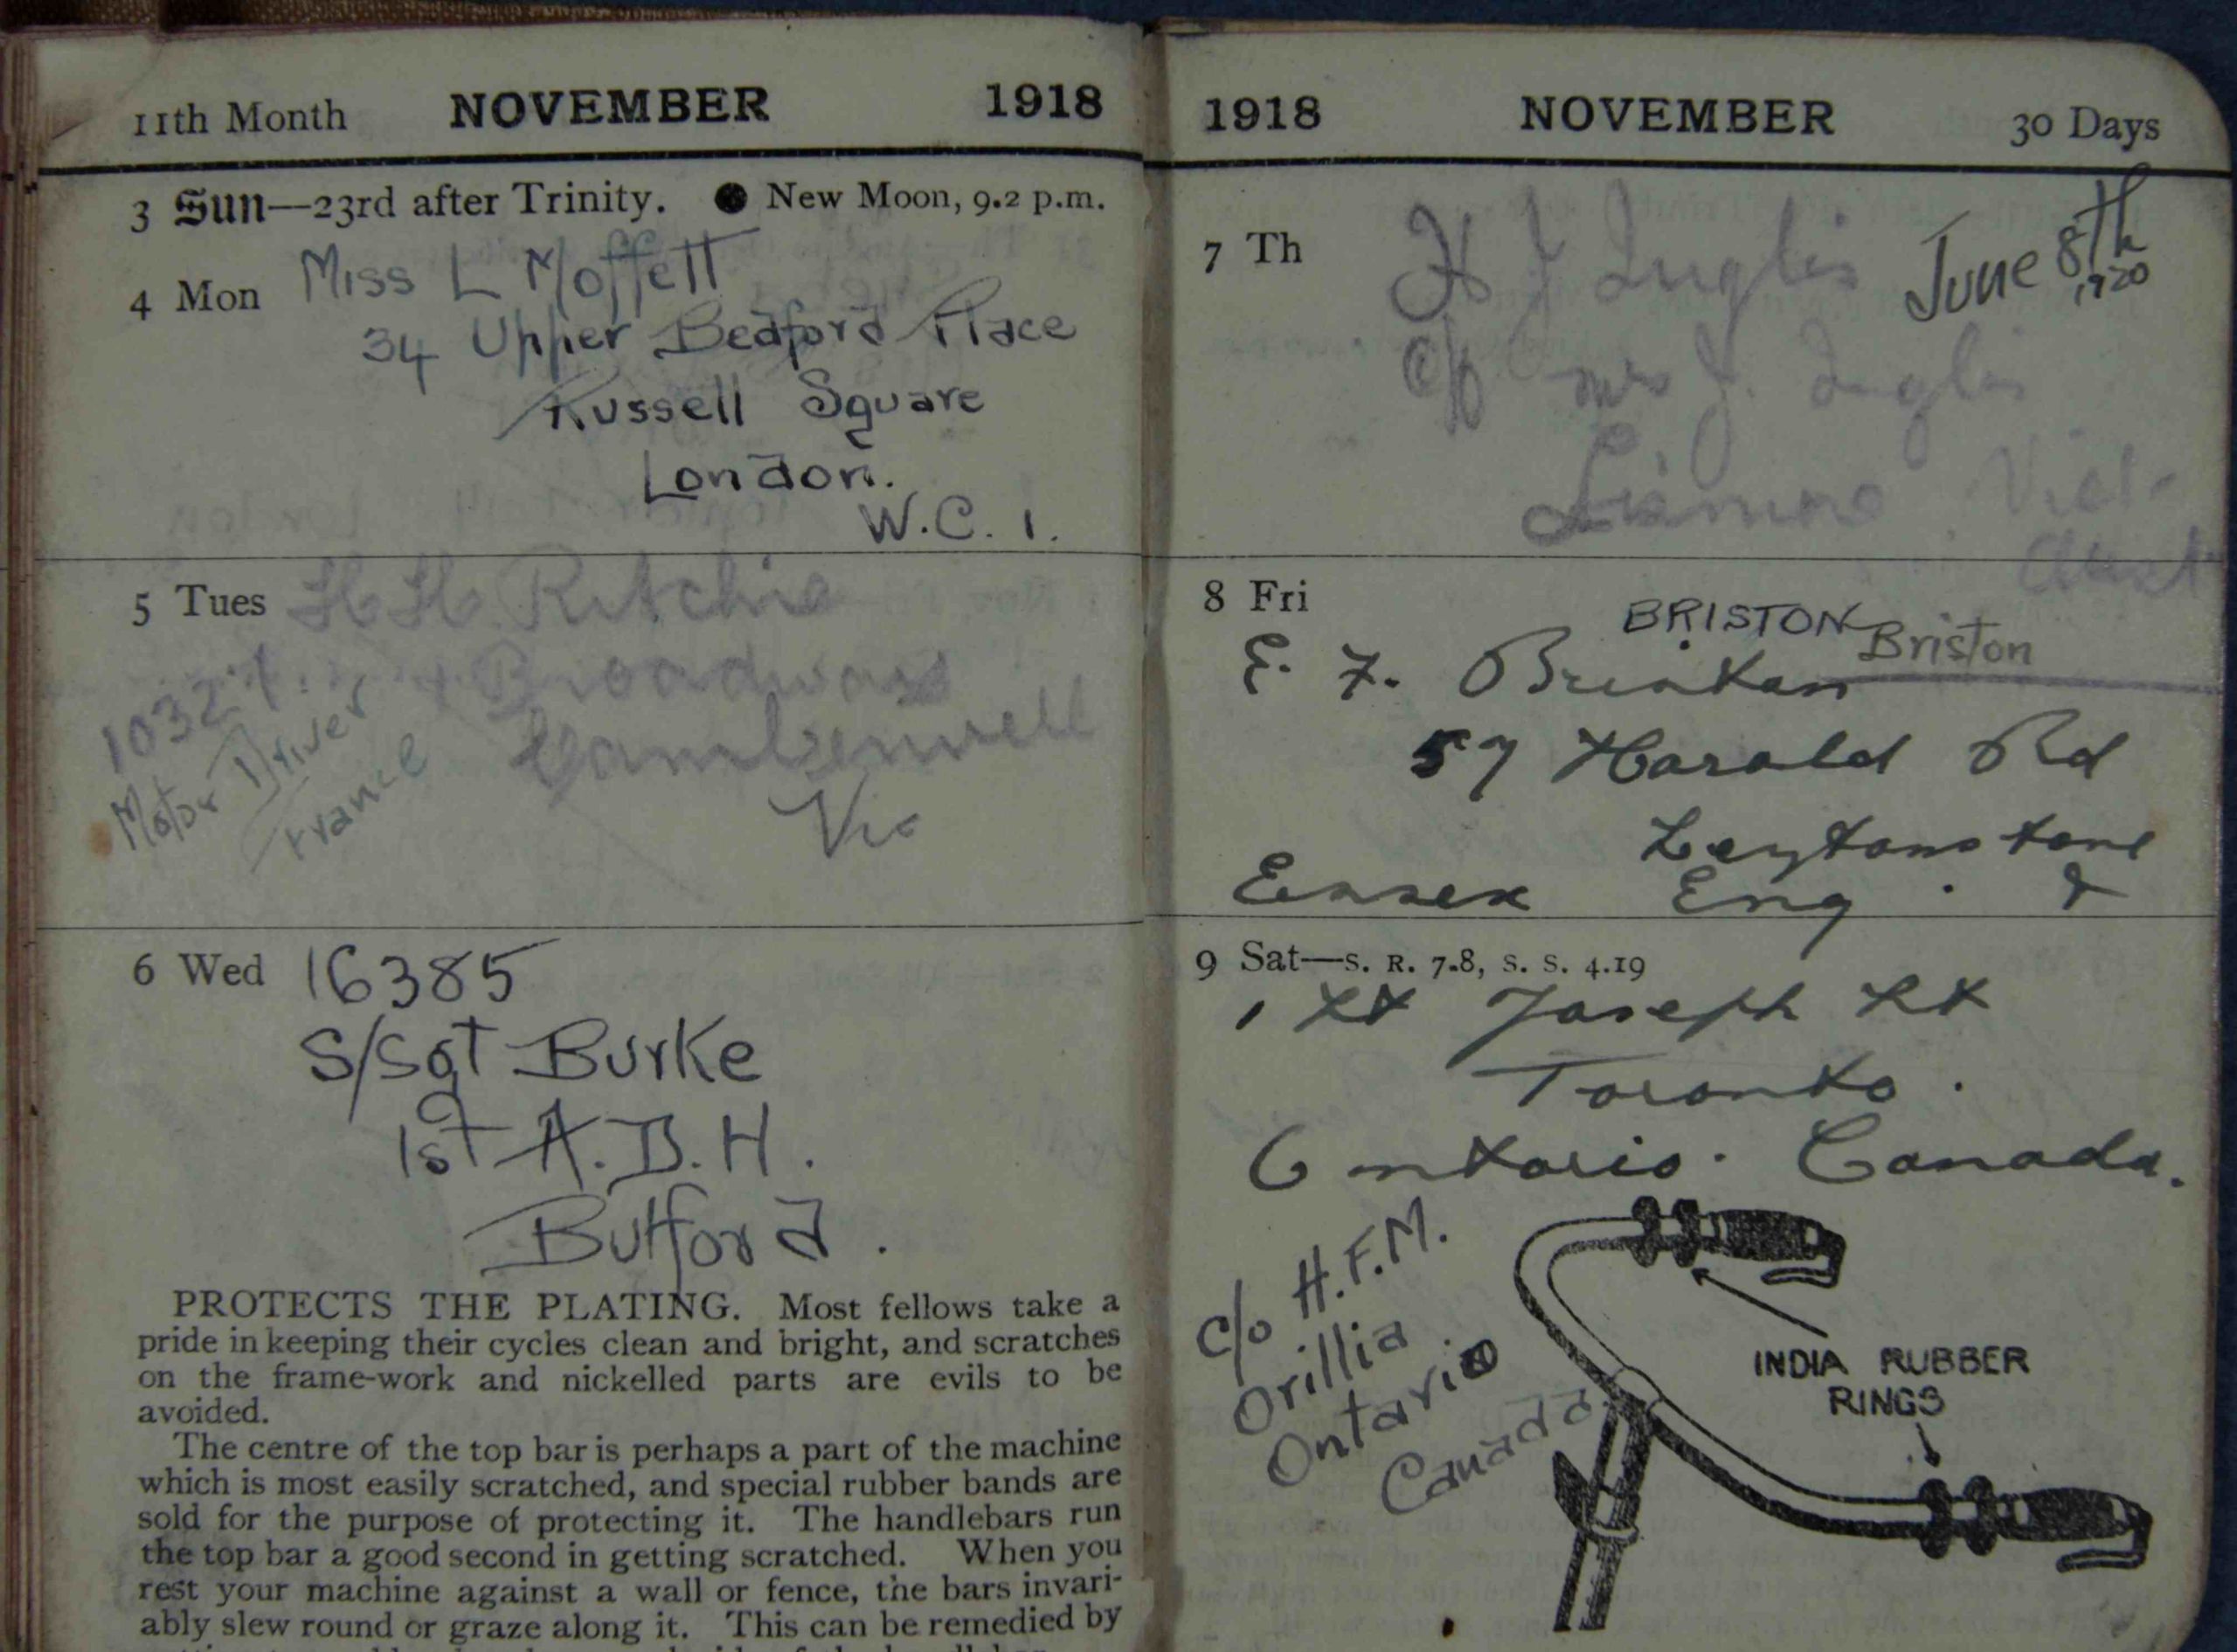 11th Month NOVEMBER 1918
3 Sun—23rd after Trinity. ● New Moon, 9.2 p.m.
4 Mon Miss L Moffett
34 Upper Bedford Place
Russell Square
London.
W.C. 1.
5 Tues H H Ritchie
Broadway
Camberwell
Vic
Motor Driver
France
6 Wed 16385
S/Sgt Burke
1st A.D.H.
Bulford.
PROTECTS THE PLATING. Most fellows take a
pride in keeping their cycles clean and bright, and scratches
on the frame-work and nickelled parts are evils to be
avoided.
The centre of the top bar is perhaps a part of the machine
which is most easily scratched, and special rubber bands are
sold for the purpose of protecting it. The handlebars run
the top bar a good second in getting scratched. When you
rest your machine against a wall or fence, the bars invari-
ably slew round or graze along it. This can be remedied by
1918 NOVEMBER 30 Days
7 Th H J Inglis June 8th 1920
c/o Mrs J. Inglis
Lismore Vict-
Aust
8 Fri
BRISTON
E. F. Briston Briston
57 Harold Rd
Leytonstone
Essex Eng. &
9 Sat—S. R. 7.8, S. S. 4.19
1 St Joseph St
Toronto.
Ontario. Canada.
c/o H.F.M.
Orillia
Ontario
Canada
INDIA RUBBER
RINGS